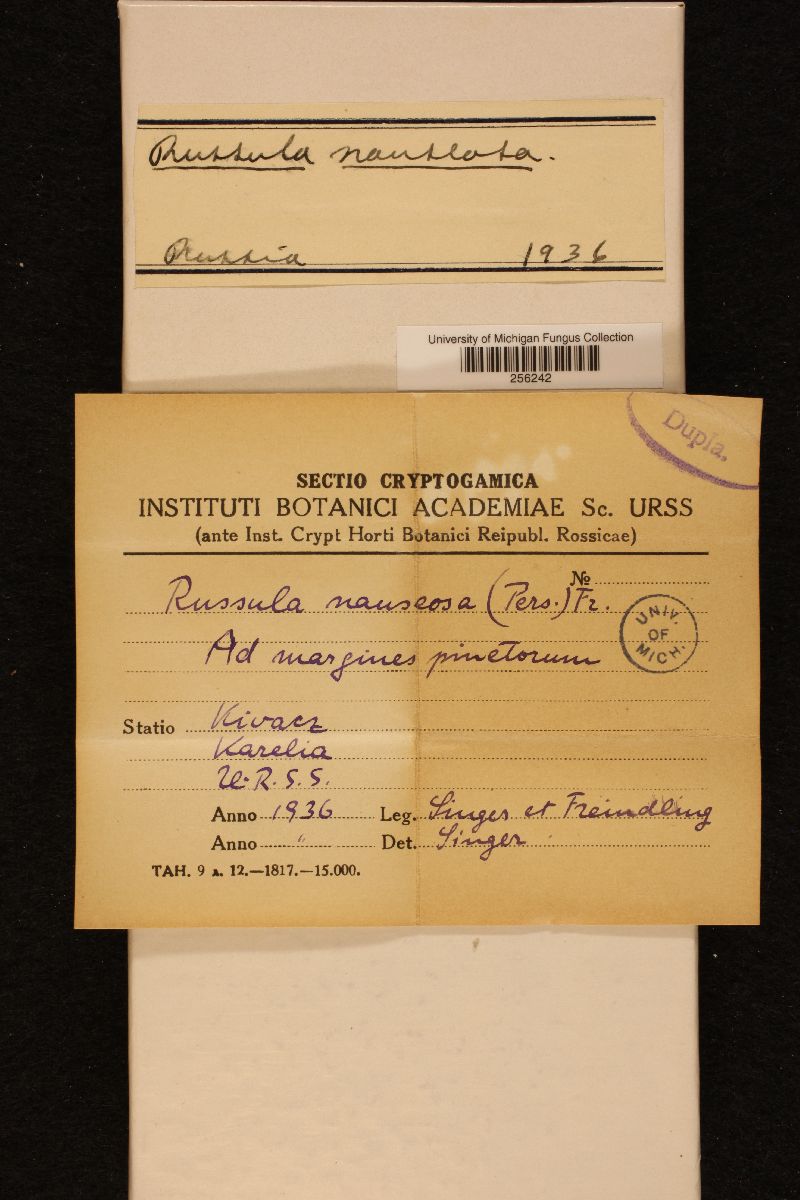 Russula nauseosa.
Russia 1936
University of Michigan Fungus Collection
256242
Dupla.
SECTIO CRYPTOGAMICA
INSTITUTI BOTANICI ACADEMIAE Sc. URSS
(ante Inst. Crypt Horti Botanici Reipubl. Rossicae)
№
Russula nauseosa (Pers.) Fr.
UNIV. OF MICH.
Ad margines pinetorum
Statio Kivacz
Karelia
U.R.S.S.
Anno 1936 Leg. Singer et Freindling
Anno " Det. Singer
ТАН. 9 л. 12.—1817.—15.000.